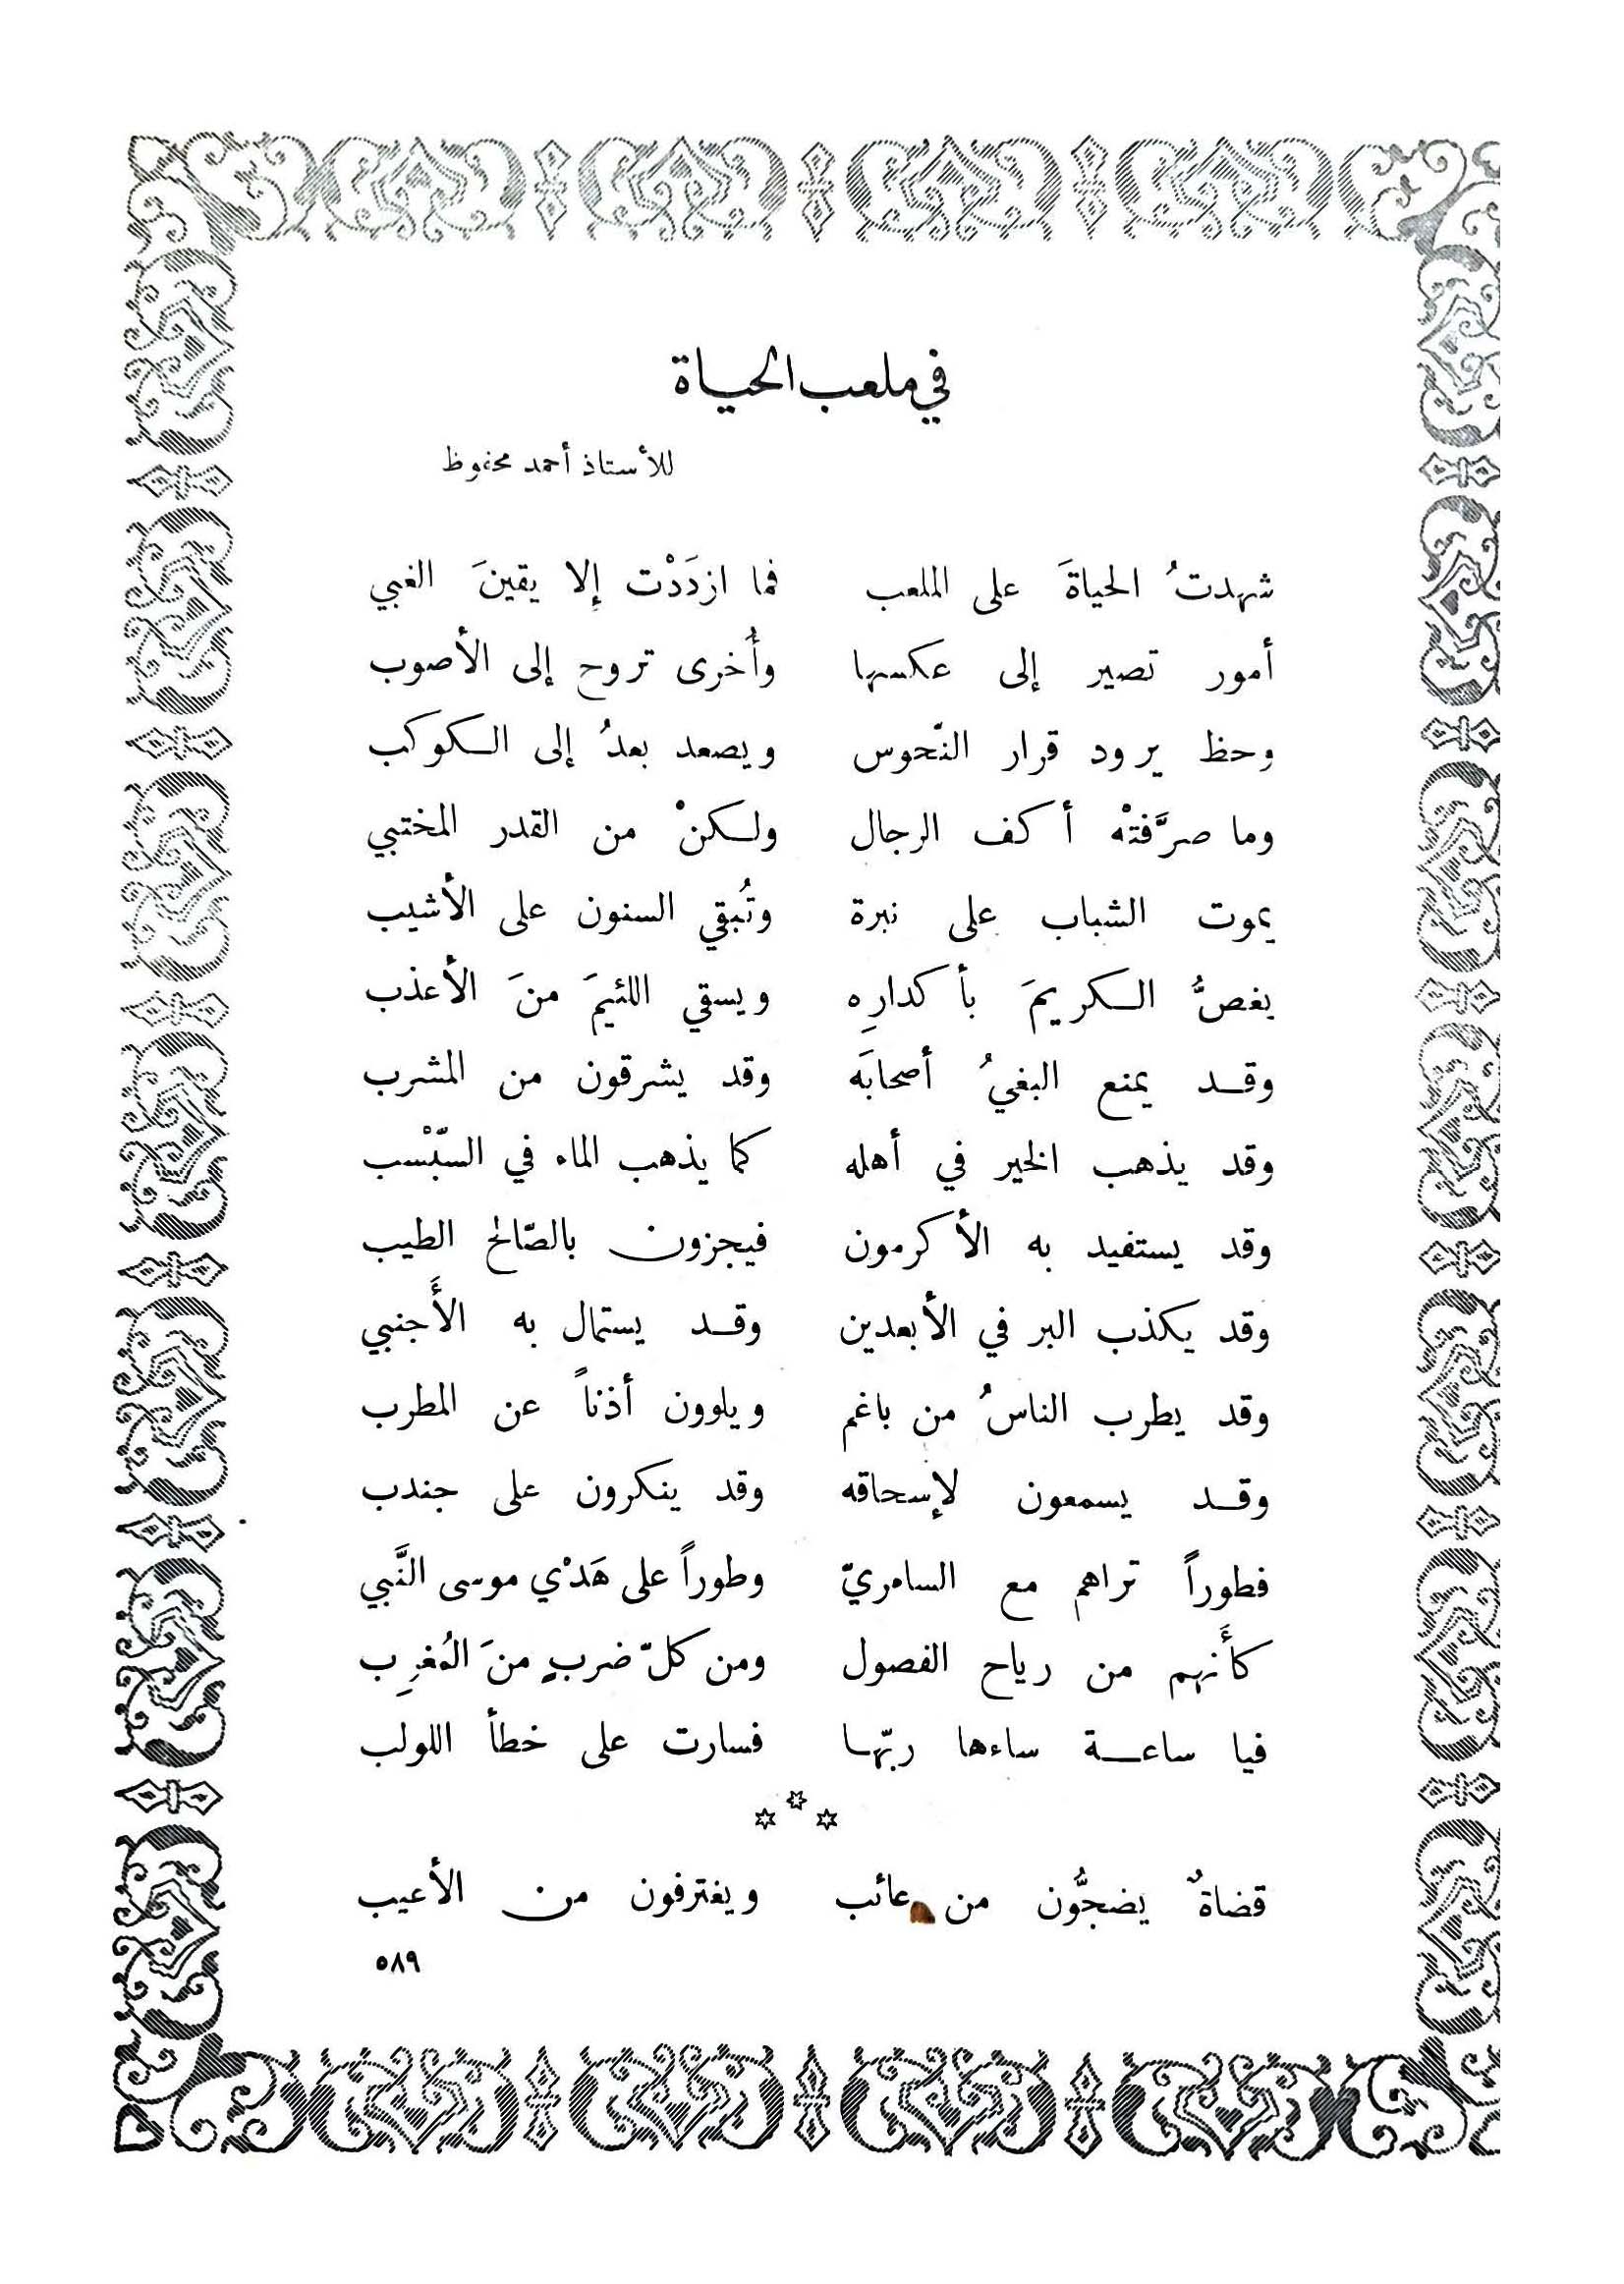 في ملعب الحياة
للأستاذ أحمد محفوظ
شهدتُ الحياةَ على الملعب فما ازدَدْت إلا يقينَ الغبي
أمور تصير إلى عكسها وأُخرى تروح إلى الأصوب
وحظ يرود قرار النّحوس ويصعد بعدُ إلى الكوكب
وما صرَّفتْه أكف الرجال ولكنْ من القدر المختبي
يموت الشباب على نبرة وتُبقي السنون على الأشيب
يغصُّ الكريمَ بأكدارِه ويسقي اللئيمَ منَ الأعذب
وقد يمنع البغيُ أصحابَه وقد يشرقون من المشرب
وقد يذهب الخير في أهله كما يذهب الماء في السّبْسب
وقد يستفيد به الأكرمون فيجزون بالصّالح الطيب
وقد يكذب البر في الأبعدين وقد يستمال به الأَجنبي
وقد يطرب الناسُ من باغم ويلوون أذناً عن المطرب
وقد يسمعون لإسحاقه وقد ينكرون على جندب
فطوراً تراهم مع السامريّ وطوراً على هَدْي موسى النَّبي
كأَنهم من رياح الفصول ومن كلّ ضربٍ منَ المُغرِب
فيا ساعة ساءها ربّها فسارت على خطأ اللولب
***
قضاةٌ يضجُّون من عائب ويغترفون من الأعيب
٥٨٩